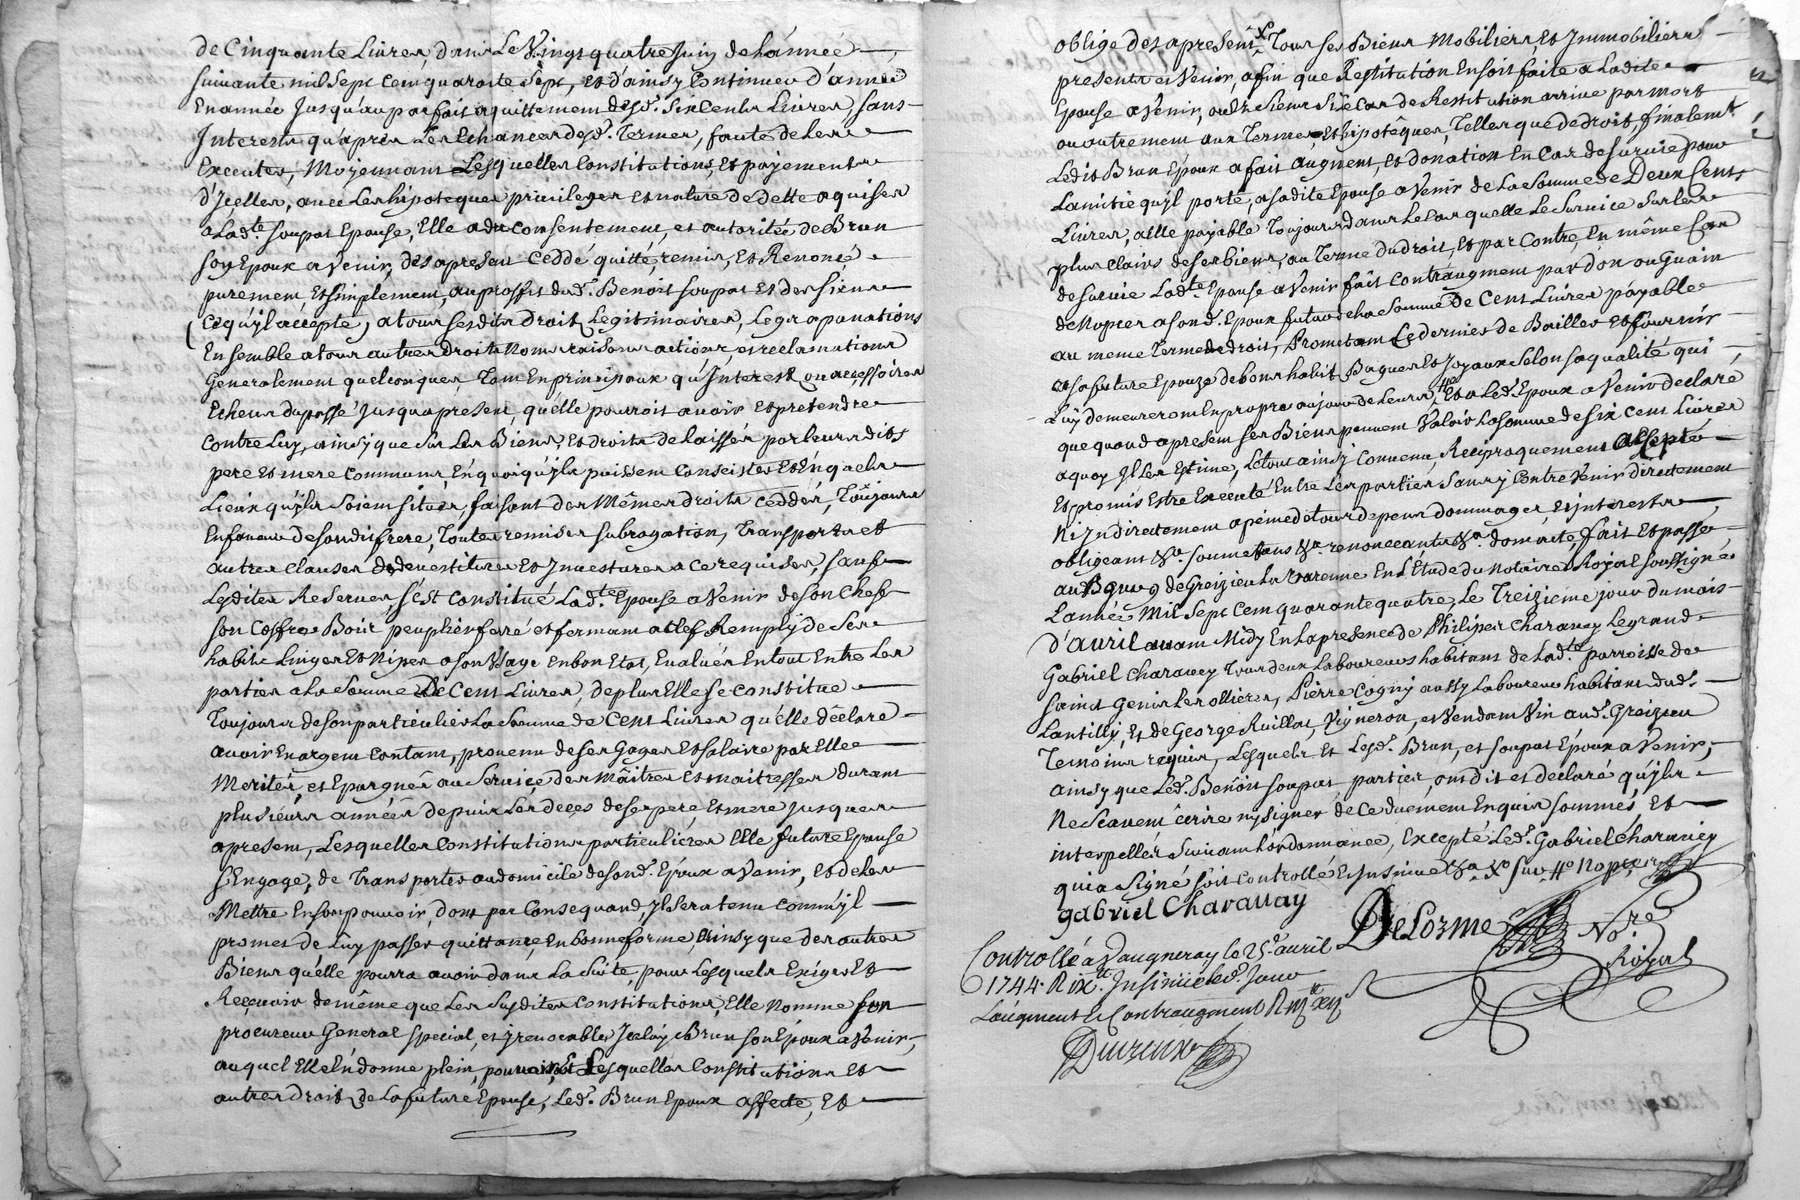 de Cinquante Livres, dans Le Vingt quatre Juin de L'année
suivante mil Sept Cent quarante Sept, et d'ainsy Continuer d'année
En année Jusqu'au parfait aquittement desd. Six Cents Livres sans
Interests qu'apres Les Echeances desd. Termes, faute de Les
Executer, Moyennant Lesquelles Constitutions, Et payements
d'Icelles, avec Les hipoteques privileges et nature de dette aquises
a Lad.te soupat Epouse, Elle a du Consentement, et autorité de Brun
son Epoux a Venir, des apresent Ceddé quitté, remis, Et Renoncé
purement, Et simplement, au proffit dud. Benoit soupat Et des siens
Ce qu'il accepte, a tous sesdits Droits Legitimaires, Legs apanations
Ensemble a tous autres droits Noms raisons actions et reclamations
Generalement quelconques Tant En principaux qu'Interest ou accessoires
Echeus du passé Jusqu'apresent, quelle pourroit avoir et pretendre
Contre Luy, ainsy que sur Les Biens, Et Droits delaissés par leurs dits
pere Et mere Communs, En quoi qu'ils puissent Consister Et En quels
Lieux qu'ils soient situés, faisant des Mêmes droits Ceddés, Toujours
En faveur de son dit frere, Toutes remises subrogation, Transports et
autres Clauses de devestiture Et Investeures a ce requises, sauf
Lesdites Reserves, s'est Constitué Lad.te Epouse a Venir de son Chef
son Coffre Bois peuplier ferré et fermant a Clef Remply de Ses
habits Linges Et Nipes a son Usage En bon Etat, Evalués En tout Entre Les
parties a La somme De Cent Livres, de plus Elle se constitue
Toujours de son particulier La somme de Cent Livres qu'elle déclare
avoir En argent contant, provenu de ses Gages Et salaires par Elle
Merités, et Epargnés au Service des Maîtres et maitresses durant
plusieurs années depuis Les deces de ses pere Et mere Jusques
apresent, Lesquelles Constitutions particulieres Elle future Epouse
s'Engage, de Transporter au domicile de sond. Epoux a Venir, et de les
Mettre En son pouvoir, dont par Consequand, Il sera tenu Comm'il
promet de Luy passer quittance, En bonne forme, Ainsy que des autres
Biens qu'elle pourra avoir dans La Suite, pour Lesquels Exiger Et
Reçevoir de même que Les Susdites Constitutions, Elle Nomme son
procureur General special, et irrevocable Iceluy Brun son Epoux a Venir,
auquel Elle En donne plein, pouvoir, Et Lesquelles Constitutions Et
autres Droits de La future Epouse, Led. Brun Epoux affecte, Et
oblige des apresent, Tous ses Biens Mobiliers, Et Immobiliers
presents et Venir, afin que Restitution En soit faite a Ladite
Epouse a Venir, ou Es Siens Si le Cas de Restitution arrive par mort
ou autrement aux Termes, Et hipotêques, Telles que de droit, finalem.t
Ledit Brun Epoux a fait augment, et donation En Cas de survie pour
L'amitié qu'il porte, a sadite Epouse a Venir de La Somme de Deux Cents
Livres, a Elle payable Toujours dans Le Cas quelle Le Survive Sur les
plus Clairs de ses biens, au Terme du droit, et par Contre, En même Cas
de survie Lad.te Epouse a Venir fait contraugment par don ou Guain
de Nopces a sond. Epoux futur de la Somme De Cent Livres payable
au meme Terme de droit, Promettant Ce dernier de Bailler et fournir
a sa future Epouze de bons habits Bagues Et Joyaux Selon sa qualité qui
Luy demeureront En propre au jour de Leurs #, Et a Led. Epoux a Venir declaré
que quand apresent ses Biens peuvent Valoir La somme de six Cent Livres
a quoy Il Les Estime, Le tout ainsy Convenu, Reciproquement accepté
Et promis Estre Executé Entre Les parties sans y Contre Venir directement
Ni Indirectement a peine de tous depens dommages, et interests
obligeant &a. soumettans &a. renonceants &a. dont acte, fait Et passé
au Bourg de Greizieu La Varenne En L'Etude du Notaire Royal soussigné
L'année Mil Sept Cent quarante quatre, Le Treizieme jour du mois
d'avril avant Midy En La presence de Philiper Charavey Legrand
Gabriel Charavey Tous deux Laboureurs habitans de Lad.te parroisse de
saint Genis Les ollieres, Pierre Cogny aussy Laboureur habitant dud.
Lantilly, Et de George Ruillat, Vigneron, et Vendant Vin aud. Greizieu
Temoins requis, Lesquels Et Lesd. Brun, et soupat Epoux a Venir,
ainsy que Led. Benoit soupat, parties, ont dit et declaré qu'ils
Ne Scavent écrire ny signer de Ce duement Enquis sommés, Et
interpellés suivant L'ordonnance, Excepté Led. Gabriel Charavey
qui a Signé soit controllé Et Insinué &a. X sus # Nopces
gabriel Charavay
DeLorme No.re
Royal
Controllé a Vaugneray le 25.e avril
1744. R Insinué led. Jour
L'augment & Contraugment R